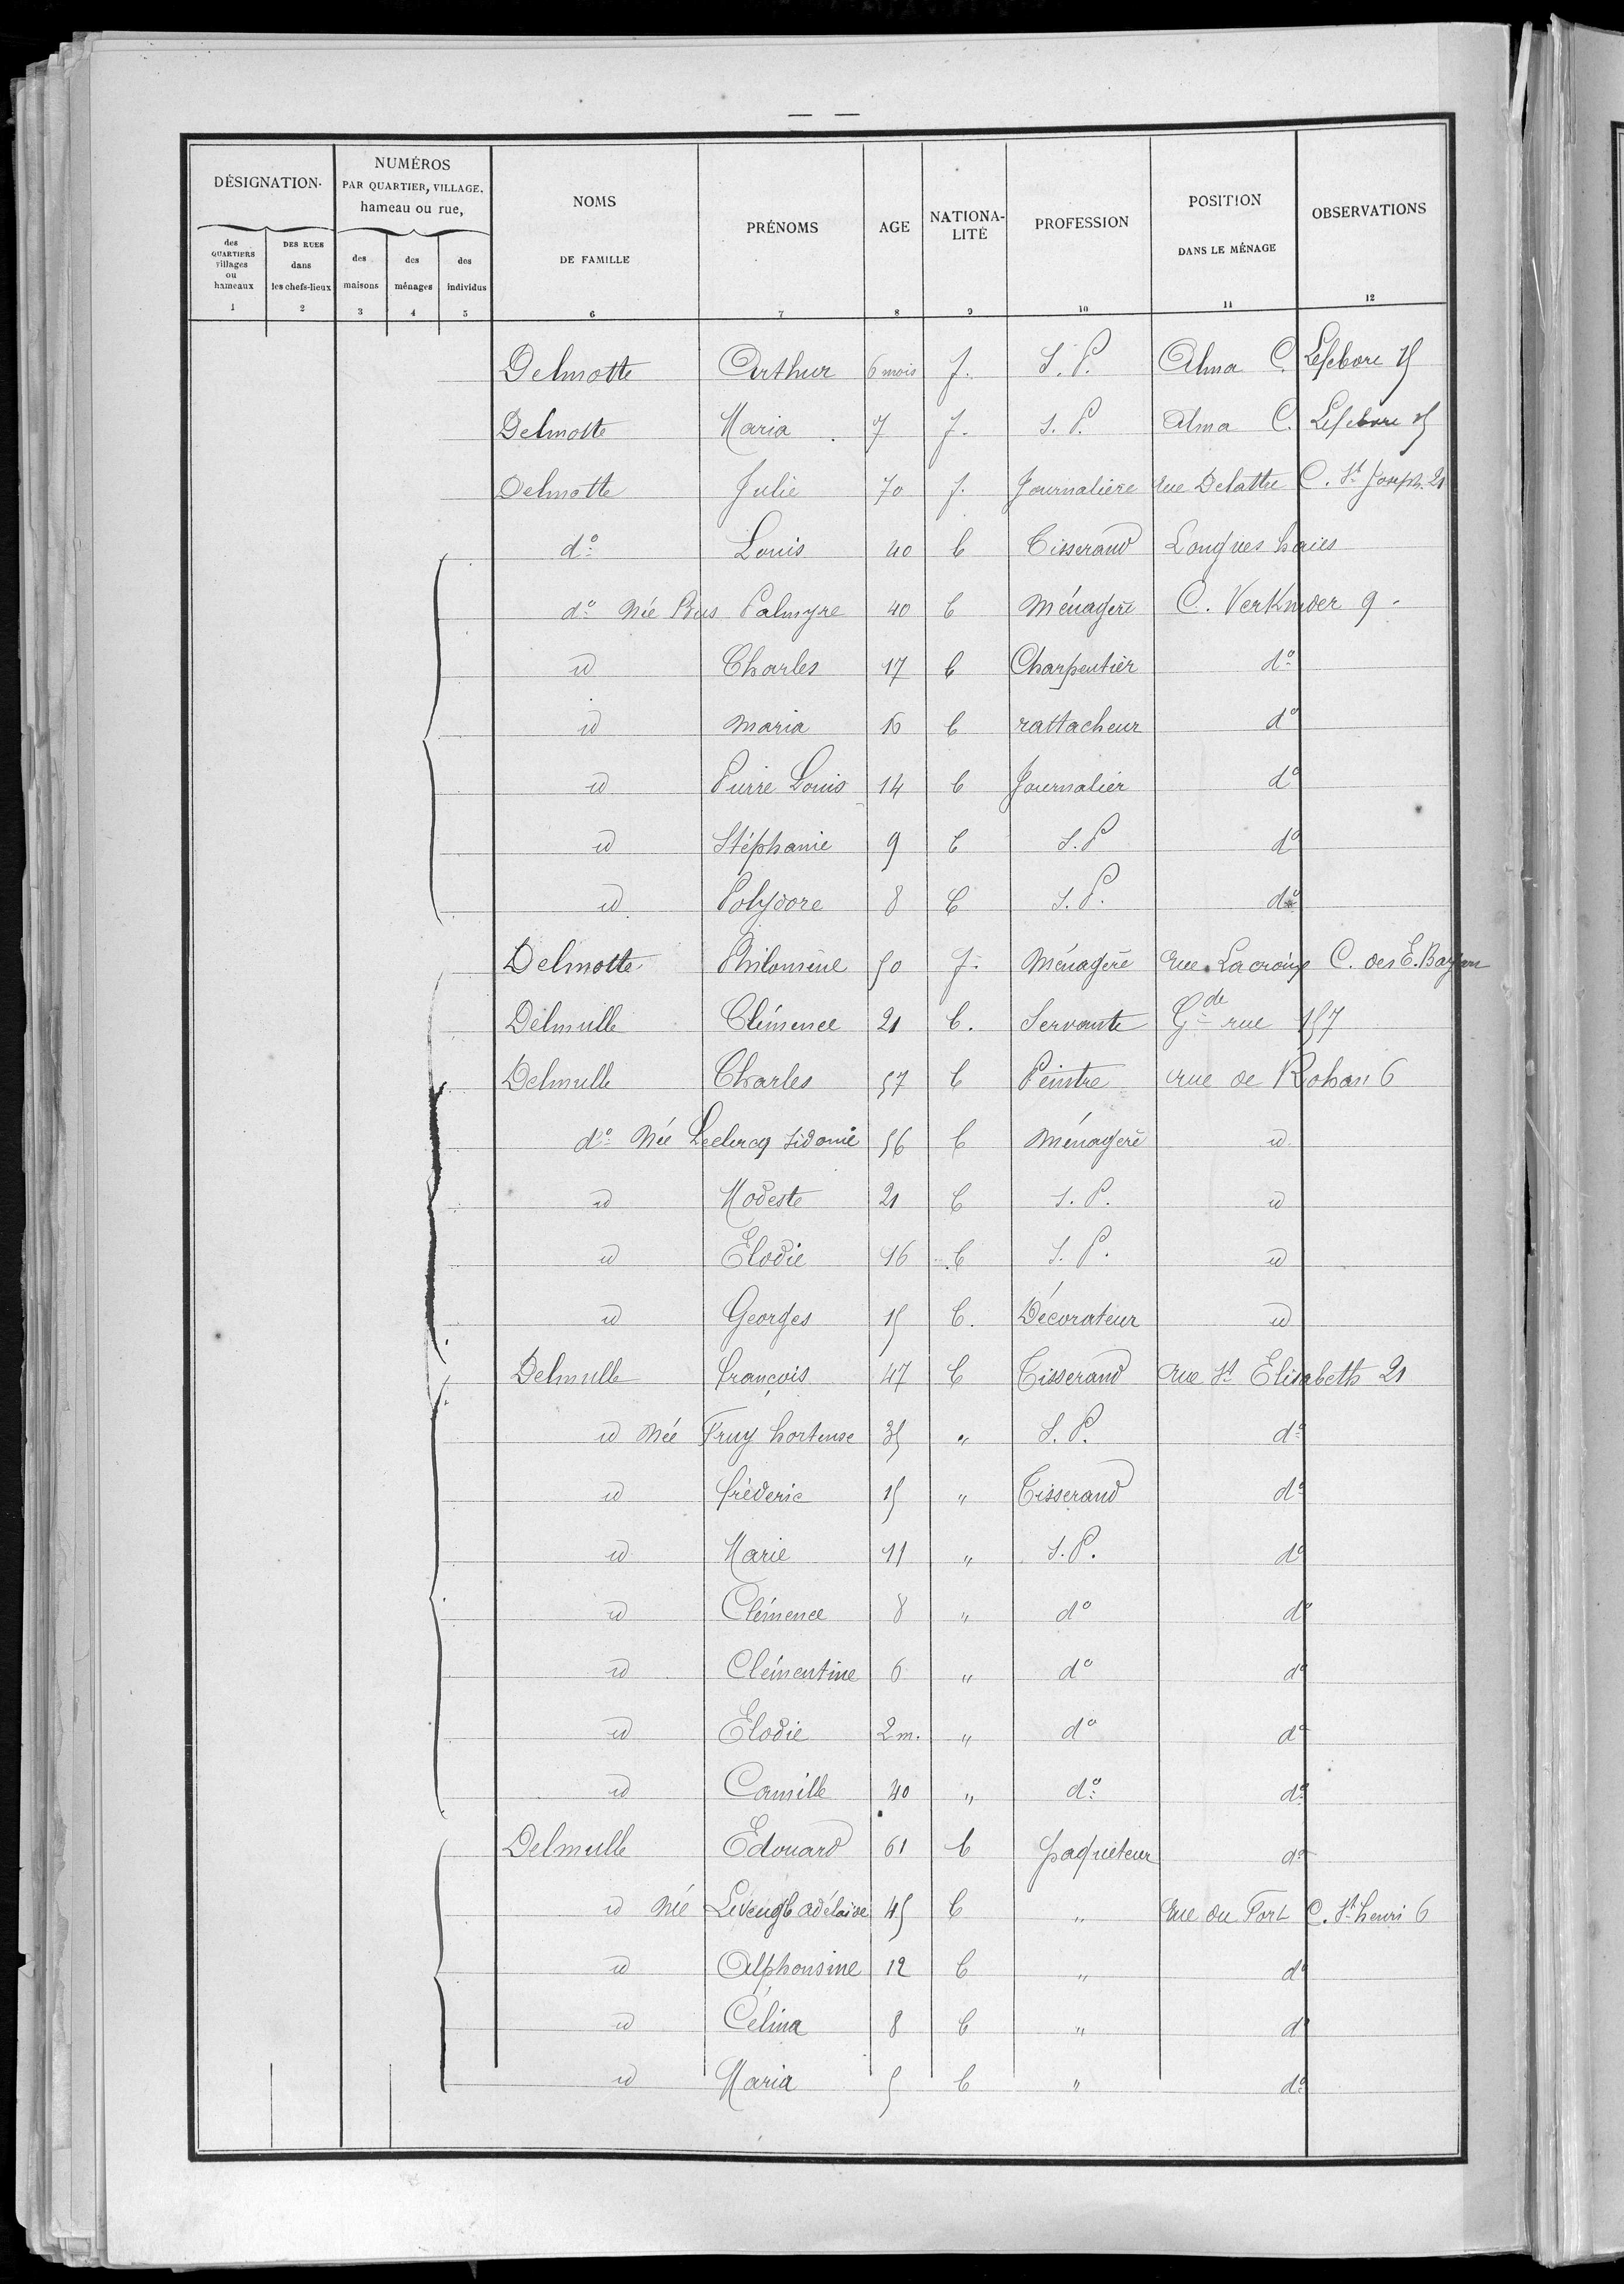 DÉSIGNATION.
NUMÉROS
PAR QUARTIER, VILLAGE,
hameau ou rue,
NOMS
DE FAMILLE
PRÉNOMS
AGE
NATIONA-
LITÉ
PROFESSION
POSITION
DANS LE MÉNAGE
OBSERVATIONS
des
QUARTIERS
villages
ou
hameaux
DES RUES
dans
les chefs-lieux
des
maisons
des
ménages
des
individus
1 2 3 4 5 6 7 8 9 10 11 12
Delmotte Arthur 6 mois f. S. P. Alma C. Lefebvre 15
Delmotte Maria 7 f. S. P. Alma C. Lefebvre 15
Delmotte Julie 70 f. Journalière rue Delattre C. St Joseph. 21
do Louis 40 b Tisserand Longues haies
do Née Bus Palmyre 40 b Ménagère C. Verkinder 9
id Charles 17 b Charpentier do
id Maria 16 b rattacheur do
id Pierre Louis 14 b Journalier do
id Stéphanie 9 b S. P do
id Polydore 8 b S. P. do
Delmotte Philomène 50 f. Ménagère rue Lacroix C. des E. Bayart
Delmulle Clémence 21 b. Servante Gde rue 157
Delmulle Charles 57 b Peintre rue de Rohan 6
do Née Leclercq Sidonie 56 b Ménagère id
id Modeste 21 b S. P. id
id Elodie 16 b S. P. id
id Georges 15 b. Décorateur id
Delmulle François 47 b Tisserand rue St Elisabeth 21
id Née Fruy hortense 35 " S. P. do
id Fréderic 15 " Tisserand do
id Marie 11 " S. P. do
id Clémence 8 " do do
id Clémentine 6 " do do
id Elodie 2 m. " do do
id Camille 40 " do do
Delmulle Edouard 61 b paqueteur do
id Née adélaïde 45 b " Rue du Fort C. St henri 6
id Alphonsine 12 b " do
id Célina 8 b " do
id Maria 5 b " do